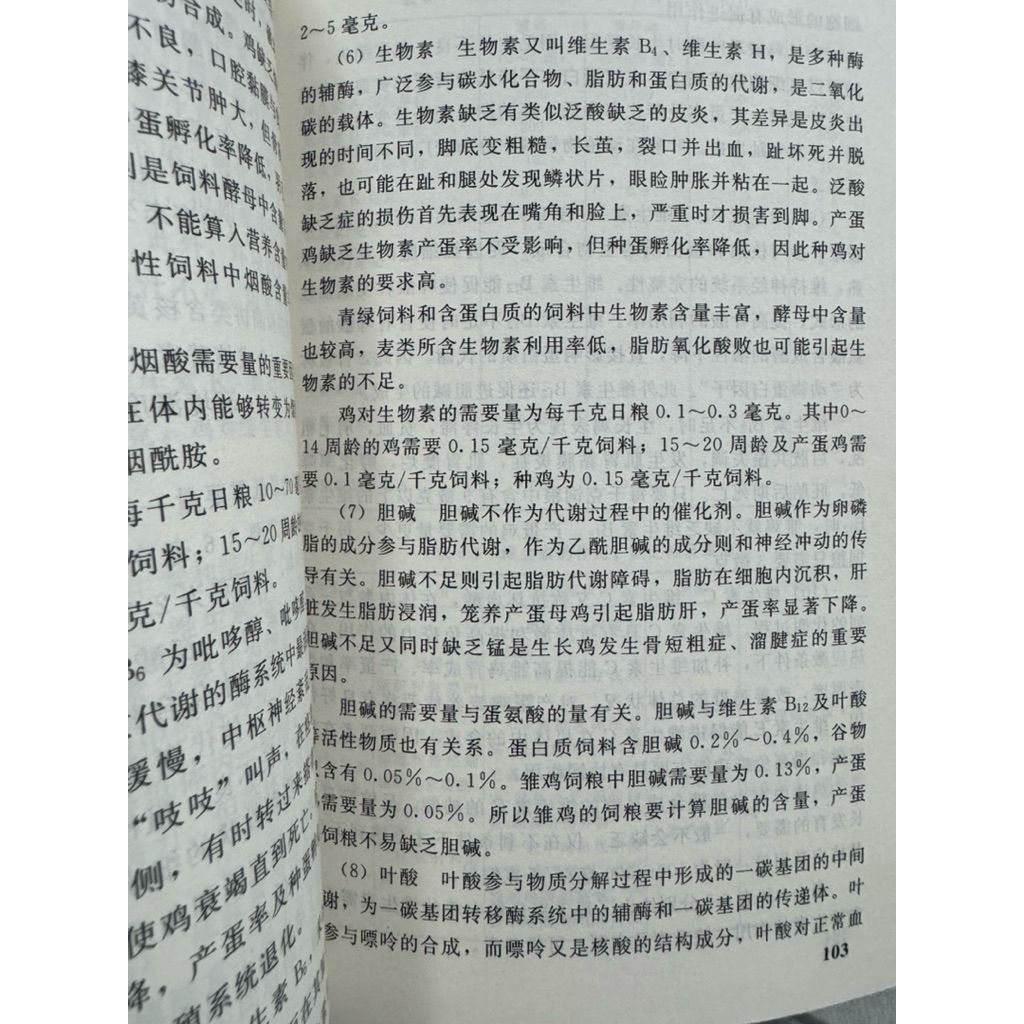 不良，口腔黏膜
膝关节肿大，但
蛋孵化率降低，
是饲料酵母中含量
不能算入营养含量
性饲料中烟酸含量
烟酸需要量的重要
体内能够转变为
烟酰胺。
每千克日粮10～70
饲料；15～20周龄
克/千克饲料。
B₆ 为吡哆醇、吡哆
代谢的酶系统中最
缓慢，中枢神经
“吱吱”叫声，在
侧，有时转过来
使鸡衰竭直到死亡。
降，产蛋率及种蛋
殖系统退化。
生素 B₆
2～5毫克。
(6) 生物素 生物素又叫维生素 B₄、维生素 H，是多种酶
的辅酶，广泛参与碳水化合物、脂肪和蛋白质的代谢，是二氧化
碳的载体。生物素缺乏有类似泛酸缺乏的皮炎，其差异是皮炎出
现的时间不同，脚底变粗糙，长茧，裂口并出血，趾坏死并脱
落，也可能在趾和腿处发现鳞状片，眼睑肿胀并粘在一起。泛酸
缺乏症的损伤首先表现在嘴角和脸上，严重时才损害到脚。产蛋
鸡缺乏生物素产蛋率不受影响，但种蛋孵化率降低，因此种鸡对
生物素的要求高。
青绿饲料和含蛋白质的饲料中生物素含量丰富，酵母中含量
也较高，麦类所含生物素利用率低，脂肪氧化酸败也可能引起生
物素的不足。
鸡对生物素的需要量为每千克日粮 0.1～0.3 毫克。其中0～
14周龄的鸡需要 0.15 毫克/千克饲料；15～20 周龄及产蛋鸡需
要 0.1 毫克/千克饲料；种鸡为 0.15 毫克/千克饲料。
(7) 胆碱 胆碱不作为代谢过程中的催化剂。胆碱作为卵磷
脂的成分参与脂肪代谢，作为乙酰胆碱的成分则和神经冲动的传
导有关。胆碱不足则引起脂肪代谢障碍，脂肪在细胞内沉积，肝
脏发生脂肪浸润，笼养产蛋母鸡引起脂肪肝，产蛋率显著下降。
胆碱不足又同时缺乏锰是生长鸡发生骨短粗症、溜腱症的重要
原因。
胆碱的需要量与蛋氨酸的量有关。胆碱与维生素 B₁₂ 及叶酸
等活性物质也有关系。蛋白质饲料含胆碱 0.2%～0.4%，谷物
只含有 0.05%～0.1%。雏鸡饲粮中胆碱需要量为 0.13%，产蛋
需要量为 0.05%。所以雏鸡的饲粮要计算胆碱的含量，产蛋
饲粮不易缺乏胆碱。
(8) 叶酸 叶酸参与物质分解过程中形成的一碳基团的中间
谢，为一碳基团转移酶系统中的辅酶和一碳基团的传递体。叶
参与嘌呤的合成，而嘌呤又是核酸的结构成分，叶酸对正常血
103